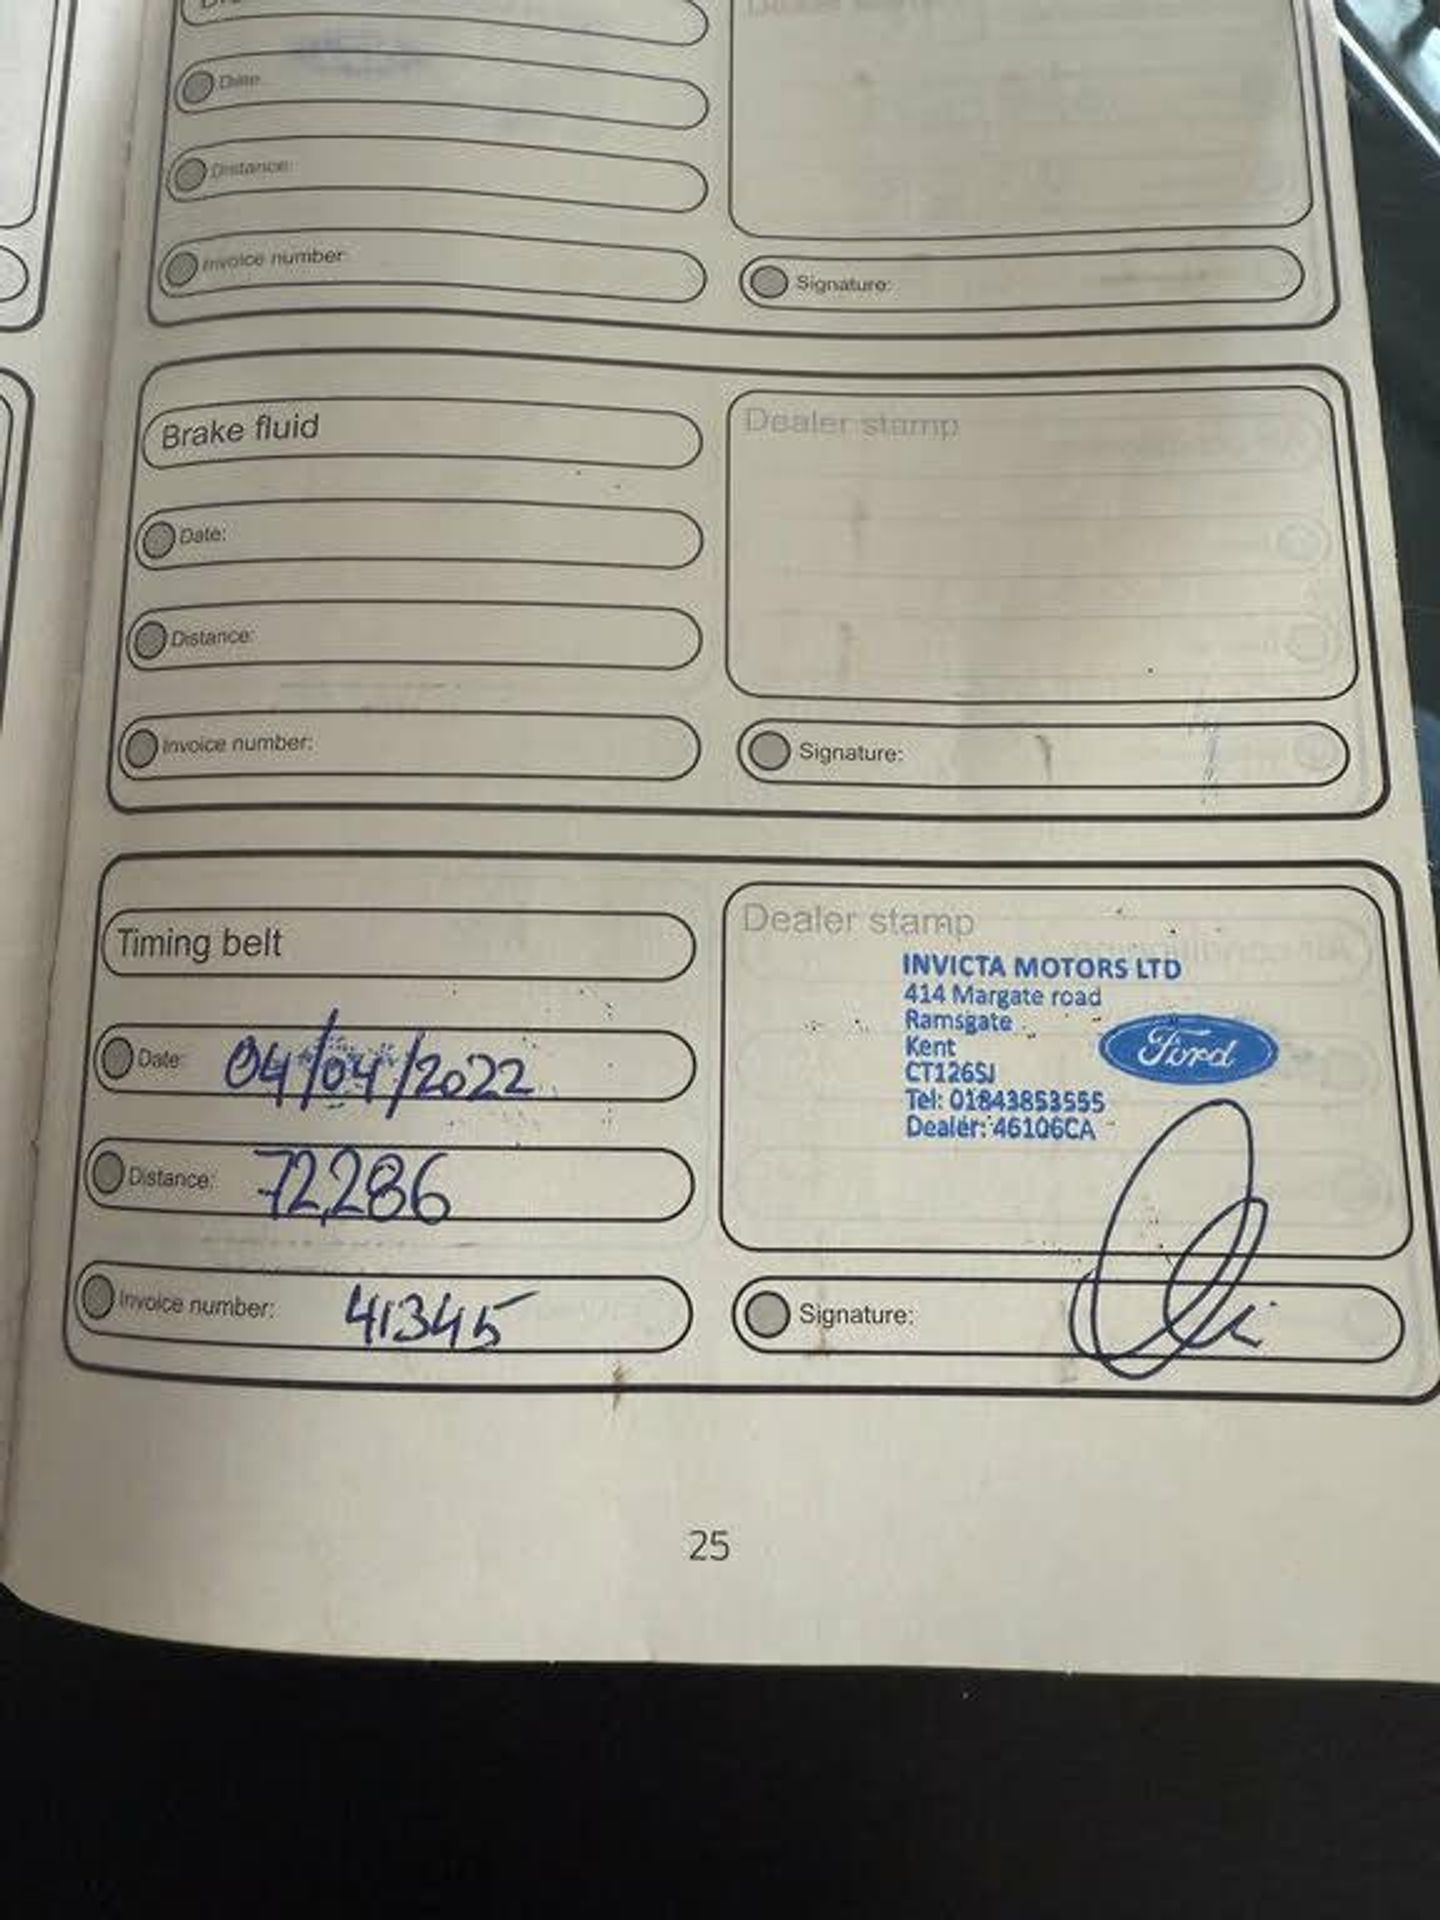 Date:
Distance:
Invoice number:
Signature:
Brake fluid
Dealer stamp
Date:
Distance:
Invoice number:
Signature:
Timing belt
Dealer stamp
INVICTA MOTORS LTD
414 Margate road
Ramsgate
Kent
CT126SJ
Tel: 01843853555
Dealer: 46106CA
Ford
Date: 04/04/2022
Distance: 72,286
Invoice number: 41345
Signature:
25